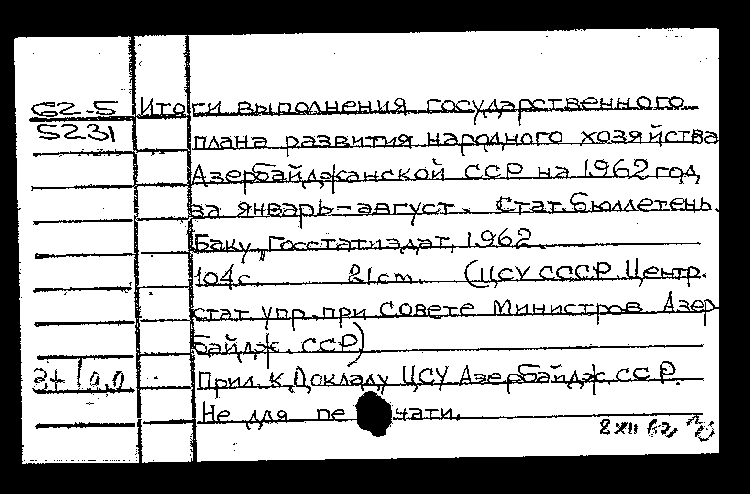 62-5 Итоги выполнения государственного
5231 плана развития народного хозяйства
Азербайджанской ССР на 1962 год
за январь-август. Стат. бюллетень.
Баку, Госстатиздат, 1962.
104 с. 21 см. (ЦСУ СССР. Центр.
стат. упр. при Совете Министров Азер
байдж. ССР)
Прил. к Докладу ЦСУ Азербайдж. ССР.
Не для пе чати.
8 XII 62